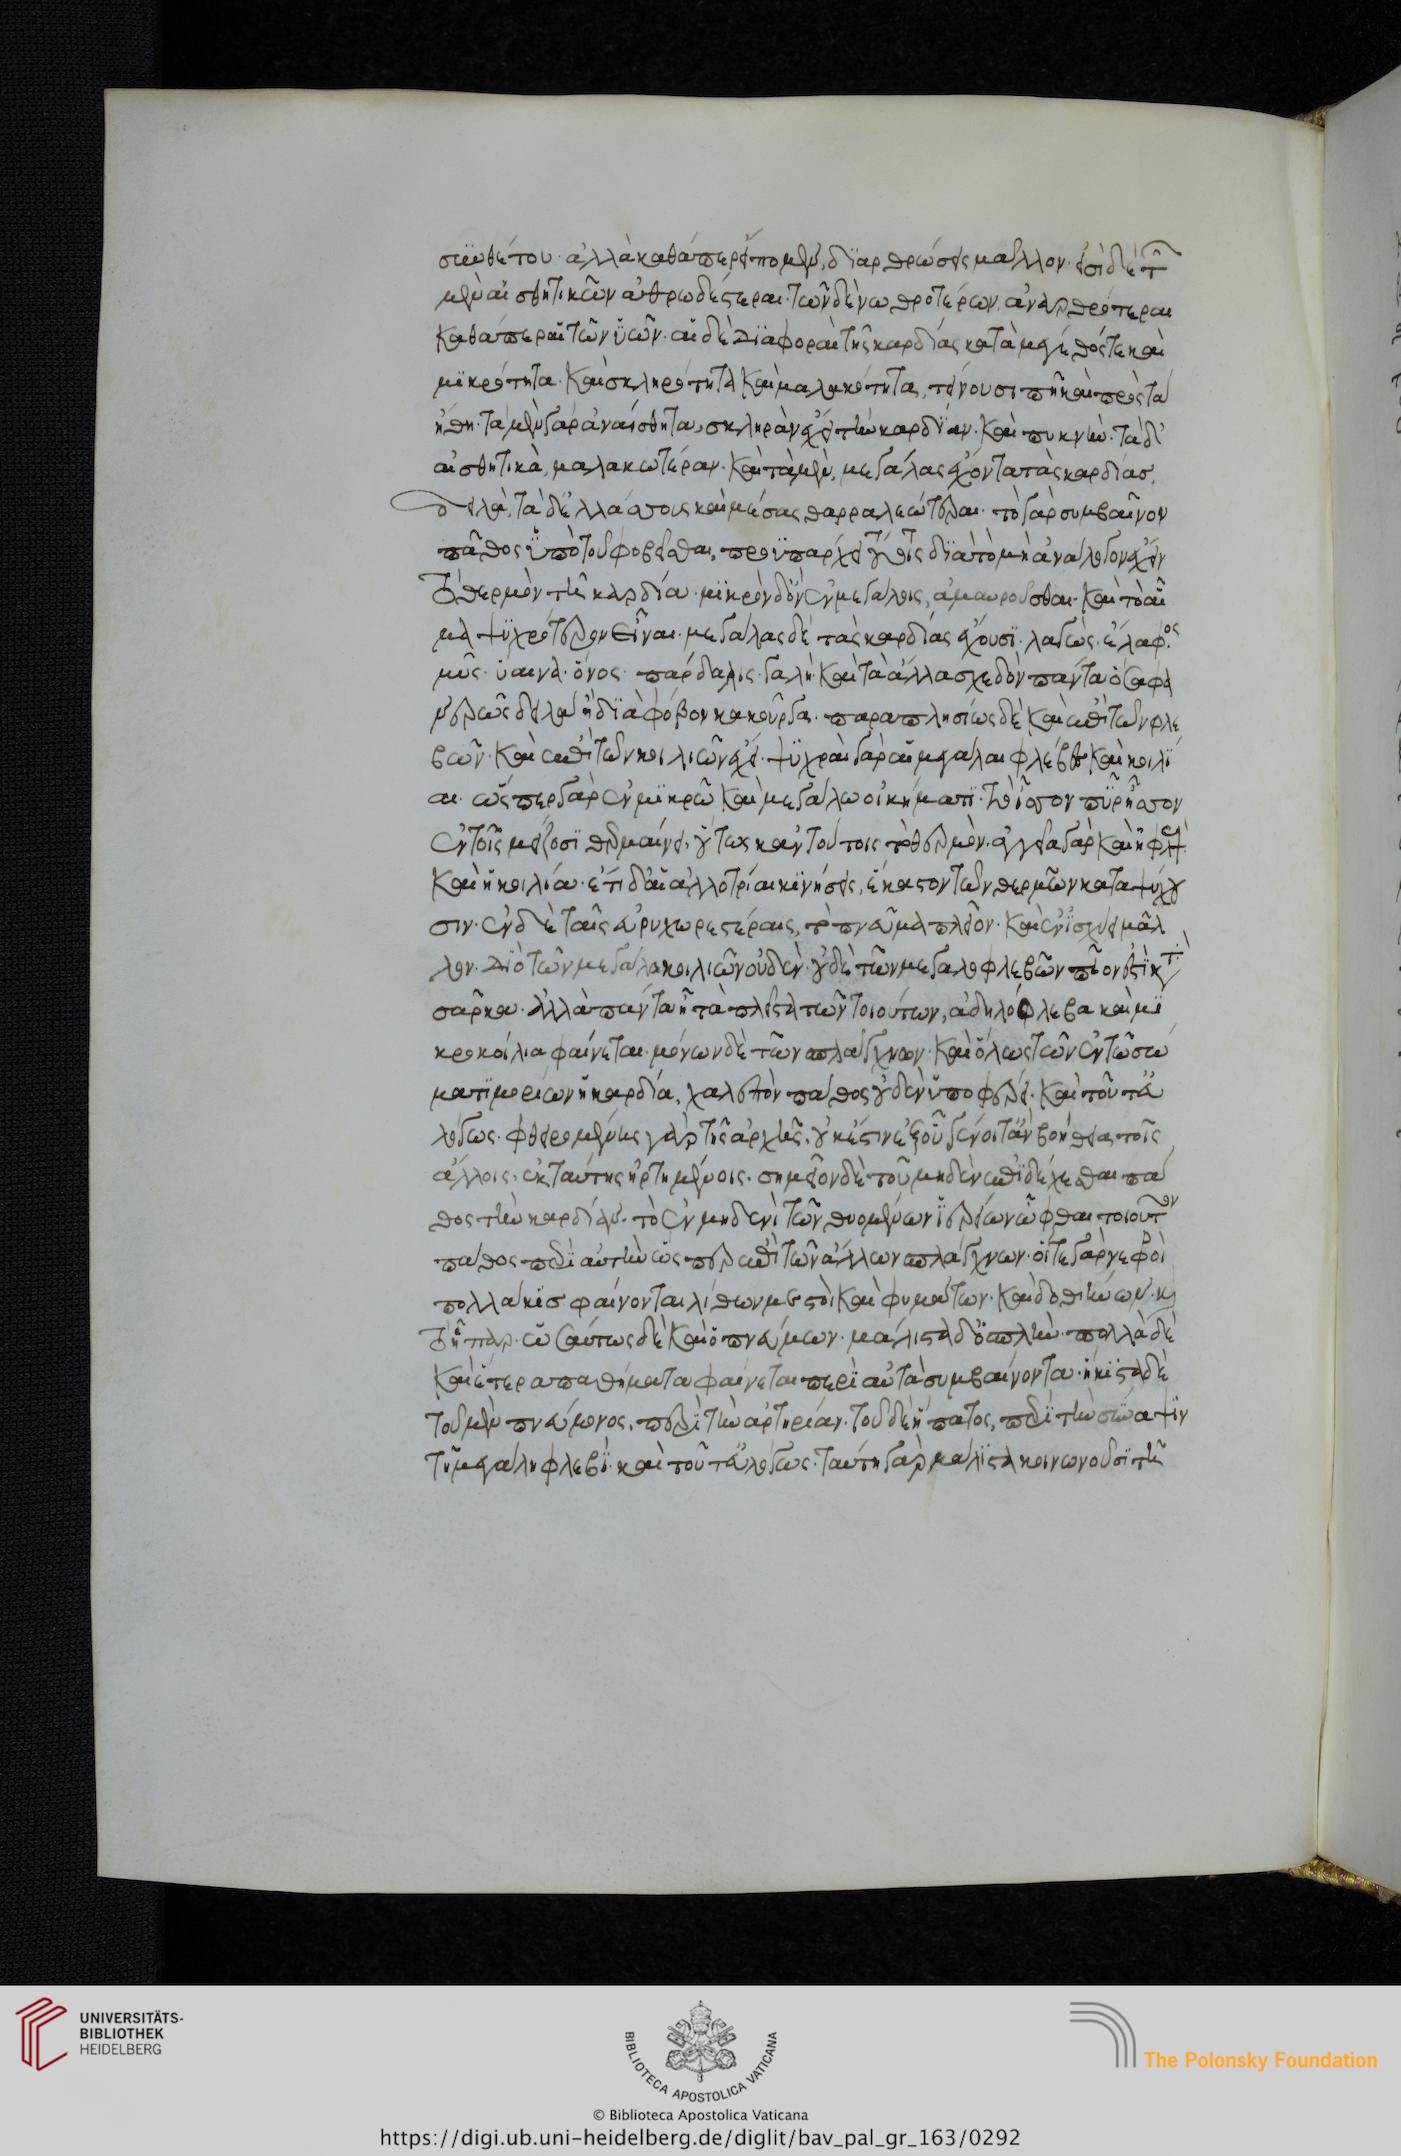 συνθέτου· ἀλλὰ καθάπερ εἴπομεν, διαρθρώσεις μᾶλλον· εἰσὶ δὲ τῶν
μὲν αἰσθητικῶν ἀρθρωδέστεραι· τῶν δὲ νωθροτέρων, ἀναρθρότεραι
καθάπερ αἱ τῶν ὑῶν· αἱ δὲ διαφοραὶ τῆς καρδίας κατὰ μέγεθός τε καὶ
μικρότητα· καὶ σκληρότητα καὶ μαλακότητα, τείνουσί πη καὶ πρὸς τὰ
ἤθη· τὰ μὲν γὰρ ἀναίσθητα, σκληρὰν ἔχει τὴν καρδίαν· καὶ πυκνήν· τὰ δ'
αἰσθητικὰ, μαλακωτέραν· καὶ τὰ μὲν, μεγάλας ἔχοντα τὰς καρδίας,
δειλὰ, τὰ δὲ ἐλλάττους καὶ μέσας θαρραλεώτεραι· τὸ γὰρ συμβαῖνον
πάθος ὑπὸ τοῦ φοβεῖσθαι, προϋπάρχει τούτοις διὰ τὸ μὴ ἀνάλογον ἔχειν
τὸ θερμὸν τῇ καρδίᾳ· μικρὸν δ' ὂν ἐν μεγάλοις, ἀμαυροῦσθαι· καὶ τὸ αἷ
μα ψυχρότερον εἶναι· μεγάλας δὲ τὰς καρδίας ἔχουσι· λαγώς· ἔλαφος·
μῦς· ὕαινα· ὄνος· πάρδαλις· γαλῆ· καὶ τὰ ἄλλα σχεδὸν πάντα ὅσα φα
νερῶς δειλὰ ἢ διὰ φόβον κακοῦργα· παραπλησίως δὲ καὶ ἐπὶ τῶν φλε
βῶν· καὶ ἐπὶ τῶν κοιλιῶν ἔχει· ψυχραὶ γὰρ αἱ μεγάλαι φλέβες καὶ κοιλί
αι· ὥσπερ γὰρ ἐν μικρῷ καὶ μεγάλῳ οἰκήματι· τὸ ἴσον πῦρ ἧσσον
ἐν τοῖς μείζοσι θερμαίνει, οὕτως κἀν τούτοις τὸ θερμόν· ἀγγεῖα γὰρ καὶ ἡ φλὲψ
καὶ ἡ κοιλία· ἔτι δ' αἱ ἀλλότριαι κινήσεις, ἕκαστον τῶν θερμῶν καταψύχου
σιν· ἐν δὲ ταῖς εὐρυχωρεστέραις, τὸ πνεῦμα πλεῖον· καὶ ἐνισχύει μᾶλ
λον· διὸ τῶν μεγαλοκοιλίων οὐδὲν· οὐδὲ τῶν μεγαλοφλέβων πῖόν ἐστι κατὰ
σάρκα· ἀλλὰ πάντα ἢ τὰ πλεῖστα τῶν τοιούτων, ἀδηλόφλεβα καὶ μι
κροκοίλια φαίνεται· μόνων δὲ τῶν σπλάγχνων· καὶ ὅλως τῶν ἐν τῷ σώ
ματι μορίων ἡ καρδία, χαλεπὸν πάθος οὐδὲν ὑποφέρει· καὶ τοῦτ' εὐ
λόγως· φθειρομένης γὰρ τῆς ἀρχῆς, οὐκ ἔστιν ἐξ οὗ γένοιτ' ἂν βοήθεια τοῖς
ἄλλοις, ἐκ ταύτης ἠρτημένοις· σημεῖον δὲ τοῦ μηδὲν ἐπιδέχεσθαι πά
θος τὴν καρδίαν· τὸ ἐν μηδενὶ τῶν θυομένων ἱερείων ὦφθαι τοιοῦτον
πάθος περὶ αὐτὴν ὥσπερ ἐπὶ τῶν ἄλλων σπλάγχνων· οἵ τε γὰρ νεφροὶ
πολλάκις φαίνονται λίθων μεστοὶ καὶ φυμάτων· καὶ δοθιήνων· καὶ
τὸ ἧπαρ· ὡσαύτως δὲ καὶ ὁ πνεύμων· μάλιστα δ' ὁ σπλήν· πολλὰ δὲ
καὶ ἕτερα παθήματα φαίνεται περὶ αὐτὰ συμβαίνοντα· ἥκιστα δὲ
τοῦ μὲν πνεύμονος, περὶ τὴν ἀρτηρίαν· τοῦ δὲ ἥπατος, περὶ τὴν σύναψιν
τῇ μεγάλῃ φλεβί· καὶ τοῦτ' εὐλόγως· ταύτῃ γὰρ μάλιστα κοινωνοῦσι τῇ
UNIVERSITÄTS-
BIBLIOTHEK
HEIDELBERG
BIBLIOTECA APOSTOLICA VATICANA
The Polonsky Foundation
© Biblioteca Apostolica Vaticana
https://digi.ub.uni-heidelberg.de/diglit/bav_pal_gr_163/0292